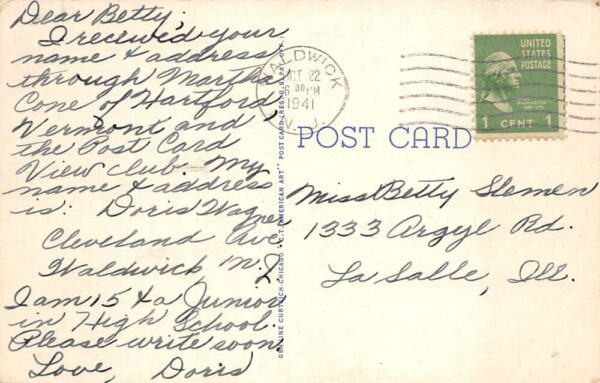 Dear Betty,
I received your
name & address
through Martha
Cone of Hartford
Vermont and
the Post Card
View club. My
name & address
is: Doris Wagner
Cleveland Ave.
Waldwick N.J.
I am 15 & a Junior
in High School.
Please write soon
Love, Doris
GENUINE CURTEICH-CHICAGO "C.T. AMERICAN ART" POST CARD (REG. U.S. PAT. OFF.)
WALDWICK
OCT 22
6 30 PM
1941
N.J.
UNITED
STATES
POSTAGE
WASHINGTON
1 CENT 1
POST CARD
Miss Betty Slemen
1333 Argyl Rd.
La Salle, Ill.